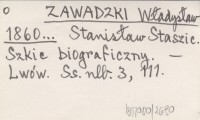 o
ZAWADZKI Władysław
1860... Stanisław Staszic.
Szkic biograficzny. —
Lwów. Ss. nlb. 3, 111.